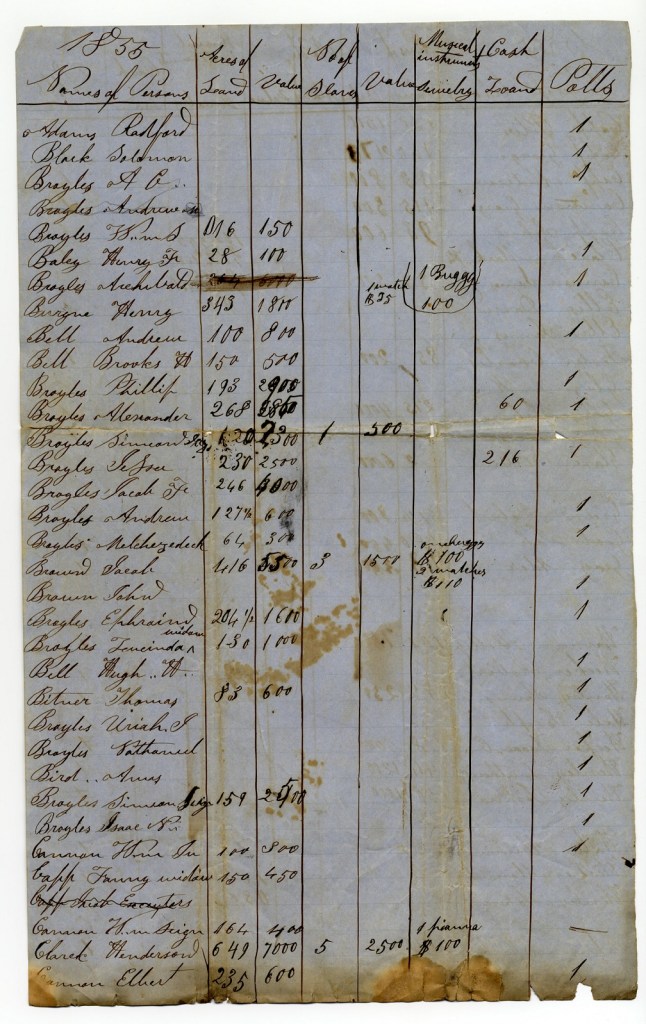 1855
Names of Persons Acres of Land Value No of Slaves Value Musical instrumens Jewelry Cash Loand Polls
Adams Radford 1
Black Solomon 1
Broyles A C .. 1
Broyles Andrew
Broyles Wm S 016 150
Baley Henry Jr 28 100 1
Broyles Archibald 264 6000 1 watch $25 1 Buggy 100 1
Henry 343 1800
Bell Andrew 100 800 1
Bell Brooks H 150 500
Broyles Phillip 193 2900 1
Broyles Alexander 268 60 1
Broyles Simeon 1 500
Broyles 230 2500 216 1
Broyles Jacob Jr 246
Broyles Andrew 127 ½ 600 1
Broyles Melchezedeck 64 300 1
Brown Jacob 416 5500 3 1500 $100 2 watches $110 1
Brown John 1
Broyles Ephraim 204 ½ 1600 1
Broyles Lucinda widow 130 1000
Bell Hugh .. H .. 1
Bitner Thomas 83 600 1
Broyles Uriah J 1
Broyles Nathaniel 1
Bird .. Amas 1
Broyles Simeon 159 1
Broyles Isaac N .. 1
Cannon Wm Ju 100 800 1
Capp Fanny widow 150 450
Capp
Cannon Wm Seign 164 400 1 pianna $100 —
Henderson 649 7000 5 2500
Cannon Elbert 235 600 1